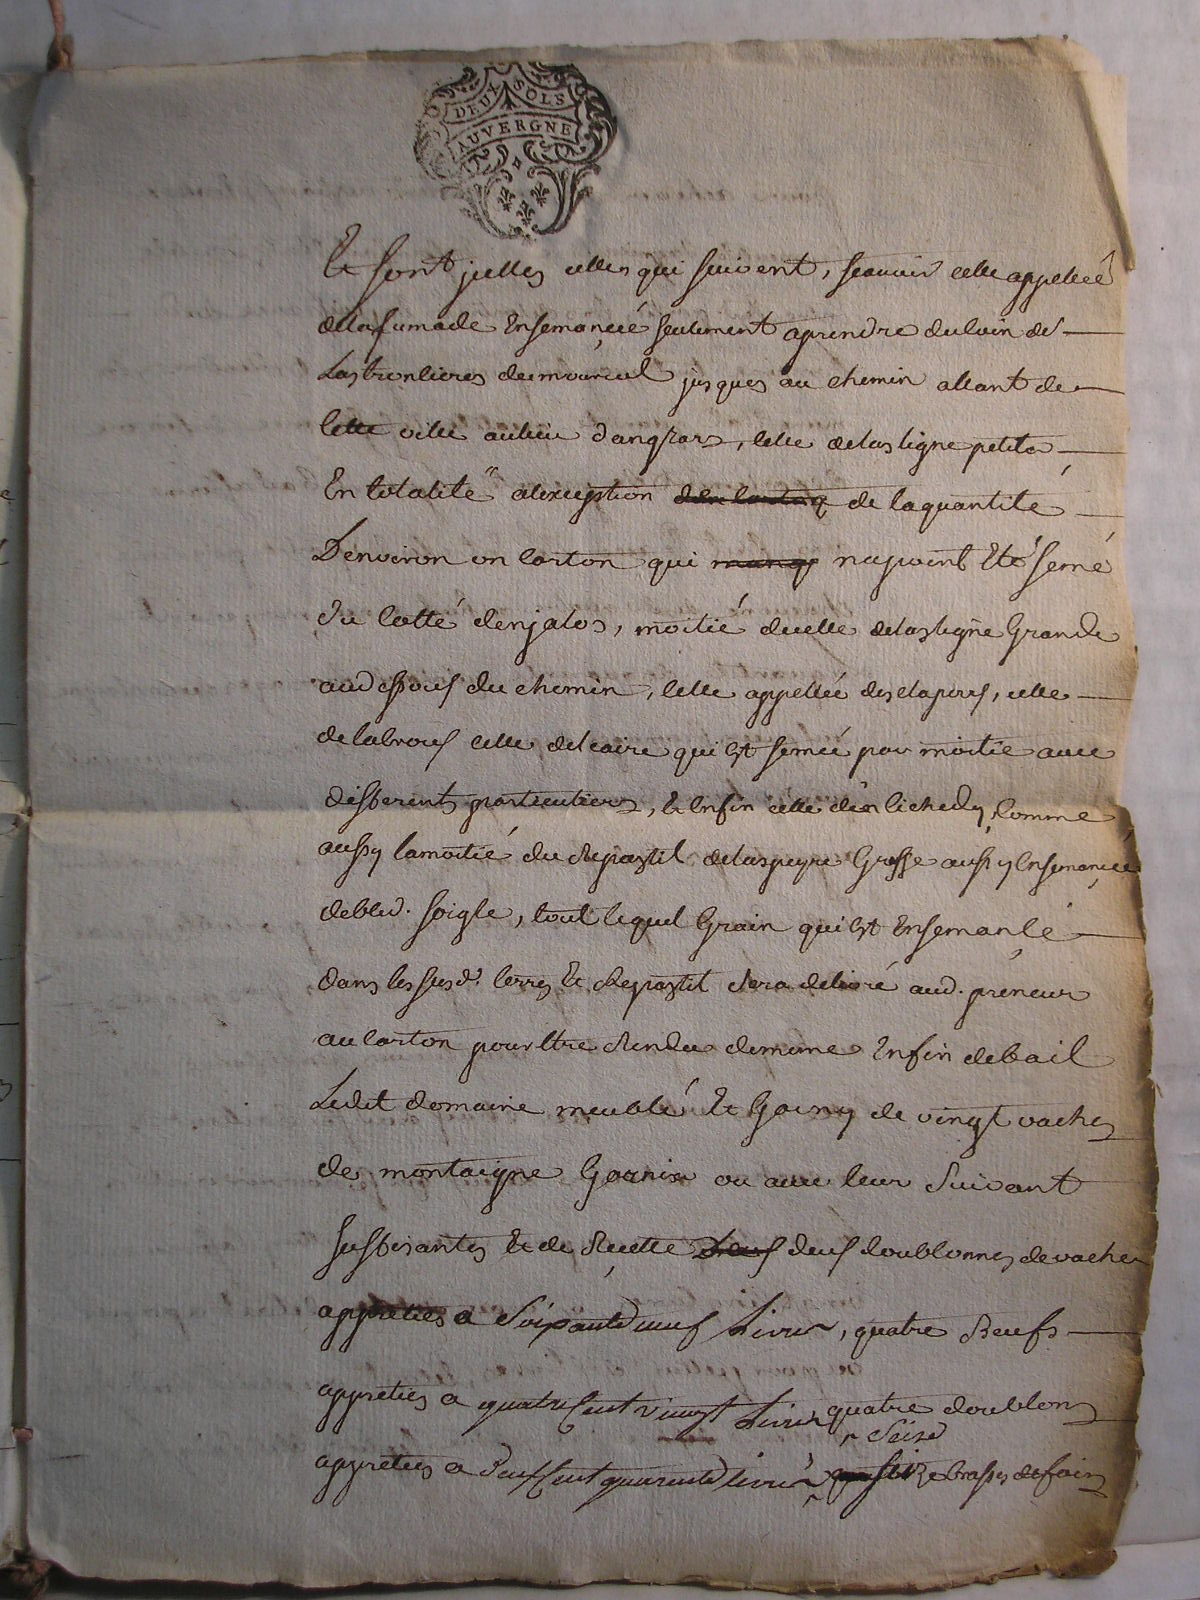 DEUX SOLS
AUVERGNE
Et sont jcelles celles qui suivent, scavoir celle appellée
delafumade Ensemancée seulement aprendre du coin de
Lastronlieres de jusques au chemin allant de
cette ville au lieu dangzars, celle delasligne petite
En totalité alexception de laquantité
Denviron un carton qui na point Eté semé
du cotté denjalos, moitié decelle delasligne Grande
audessous du chemin, celle appellée desclapous, celle
delabrous celle delcaire qui Est semée par moitié avec
differents particuliers, Et Enfin celle comme
aussy lamoitié du Repastil delaspeyre Grosse aussy Ensemancée
debled. soigle, tout lequel Grain qui Est Ensemancé
dans les susd. terres Et Repastil sera délivré aud. preneur
au carton pour Etre Rendu dememe Enfin debail
Ledit domaine meublé Et Garny de vingt vaches
de montaigne Garnies ou avec leur Suivant
suffisantes Et de Recette deux doublonnes de vaches
appretiées a Soixante neuf Livres, quatre Beufs
appretiés a quatre Cent vingt Livres, quatre doublons
Seize
appretiés a Deux Cent quarente livres brasses defoin